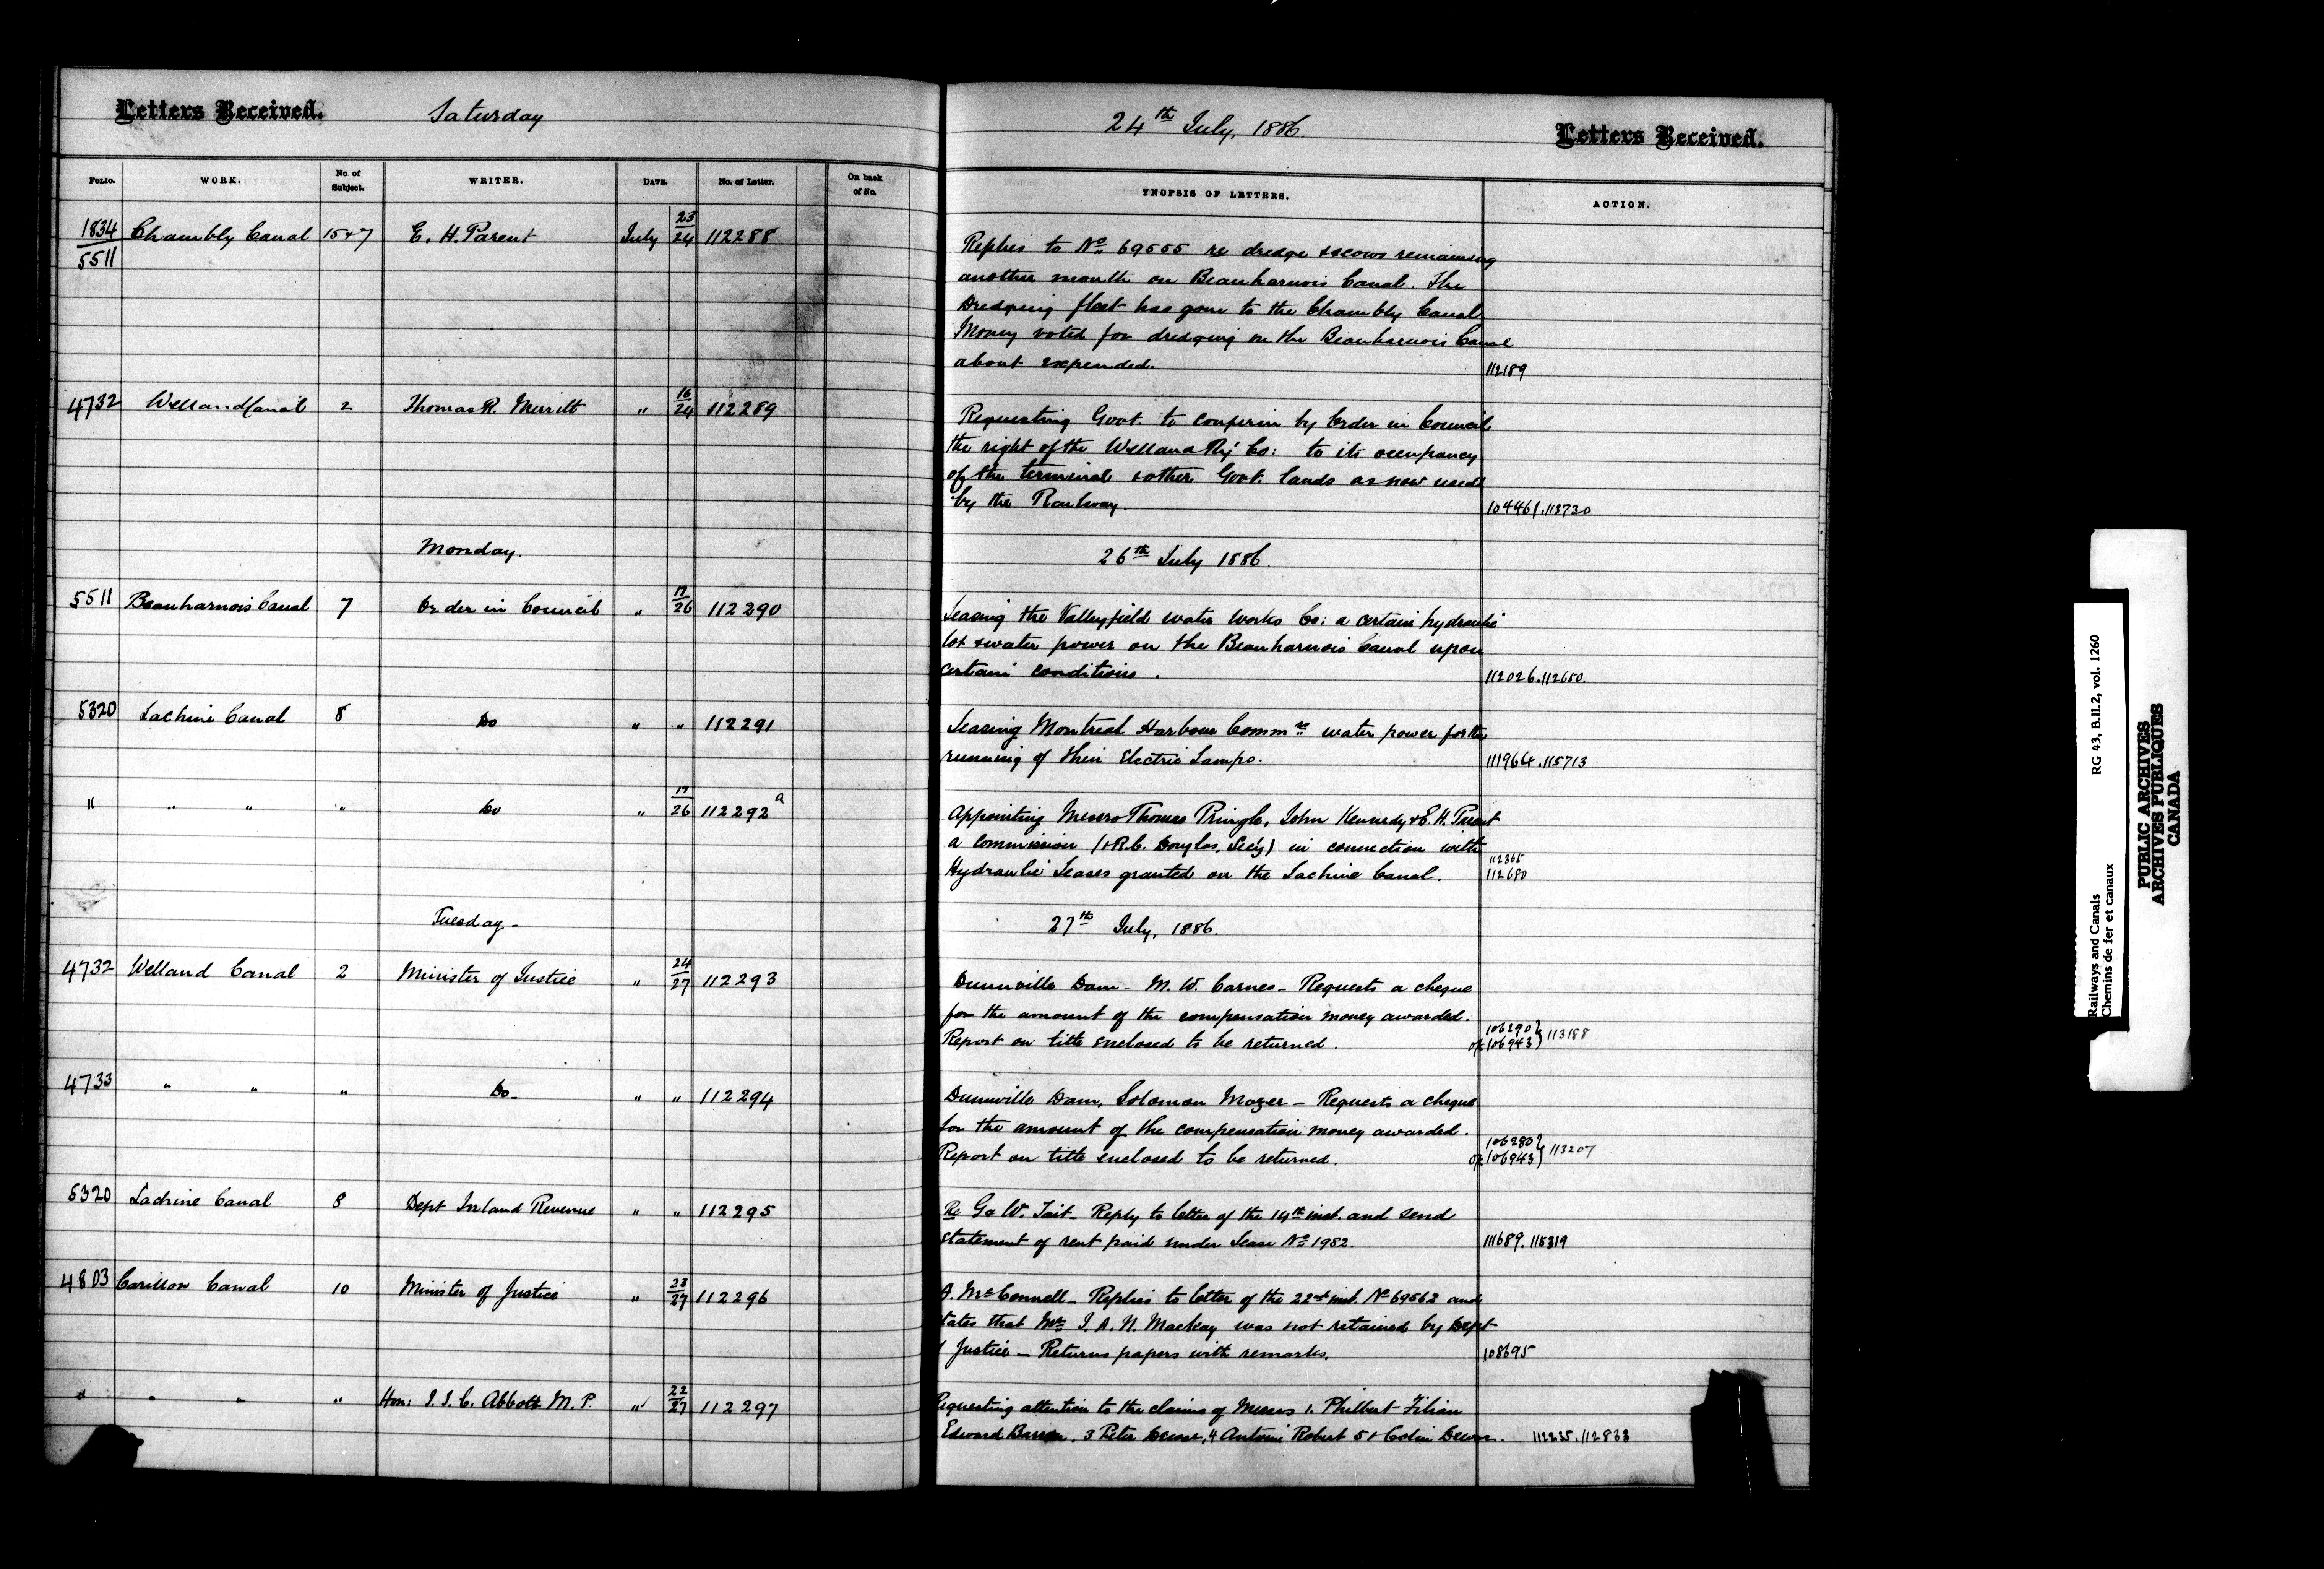 Letters Received.
Saturday
24th July, 1886.
Letters Received.
FOLIO. WORK. No. of Subject. WRITER. DATE. No. of Letter. On back of No. YNOPSIS OF LETTERS. ACTION.
1834 Chambly Canal 15+7 E. H. Parent July 23/24 112288
5511
Replies to No 69555 re dredge & scows remaining
another month on Beauharnois Canal. The
Dredging fleet has gone to the Chambly Canal
Money voted for dredging on the Beauharnois Canal
about expended. 112189
4732 Welland Canal 2 Thomas R. Merritt " 16/24 112289
Requesting Govt. to confirm by Order in Council
the right of the Welland Ry Co: to its occupancy
of the terminal & other Govt. lands as now used
by the Railway. 104461.113730
Monday. 26th July 1886.
5511 Beauharnois Canal 7 Order in Council " 17/26 112290
Leasing the Valleyfield water works Co: a certain hydraulic
lot & water power on the Beauharnois Canal upon
certain conditions. 112026.112650.
5320 Lachine Canal 8 Do " " 112291
Leasing Montreal Harbour Commrs water power for the
running of their Electric Lamps. 111964.115713
" " " " Do " 17/26 112292a
Appointing Messrs Thomas Pringle, John Kennedy & E. H. Parent
a commission (& R.C. Douglas, Secy) in connection with
112365
Hydraulic Leases granted on the Lachine Canal. 112680
Tuesday - 27th July, 1886.
4732 Welland Canal 2 Minister of Justice " 24/27 112293
Dunnville Dam - M. W. Carnes - Requests a cheque
for the amount of the compensation money awarded.
106290
Report on title enclosed to be returned. of 106943} 113188
4733 " " " Do - " " 112294
Dunnville Dam, Solomon Mazer - Requests a cheque
for the amount of the compensation money awarded.
106280
Report on title enclosed to be returned. of 106943} 113207
5320 Lachine Canal 8 Dept Inland Revenue " " 112295
Re G & W. Tait - Reply to letter of the 14th inst. and send
statement of rent paid under Lease No 1982. 111689.115319
4803 Carillon Canal 10 Minister of Justice " 23/27 112296
A. McConnell - Replies to letter of the 22nd inst. No 69562 and
tates that Mr J. A. N. Mackay was not retained by Dept
f Justice - Returns papers with remarks. 108695
" " " " Hon: J. J. C. Abbott M. P. " 22/27 112297
Requesting attention to the claims of Messrs 1. Philbert Filion
Edward Barron, 3 Peter Dewar, 4 Antoine Robert 5 & Colin Dewar. 112225.112833
Railways and Canals RG 43, B.II.2, vol. 1260
Chemins de fer et canaux
PUBLIC ARCHIVES
ARCHIVES PUBLIQUES
CANADA